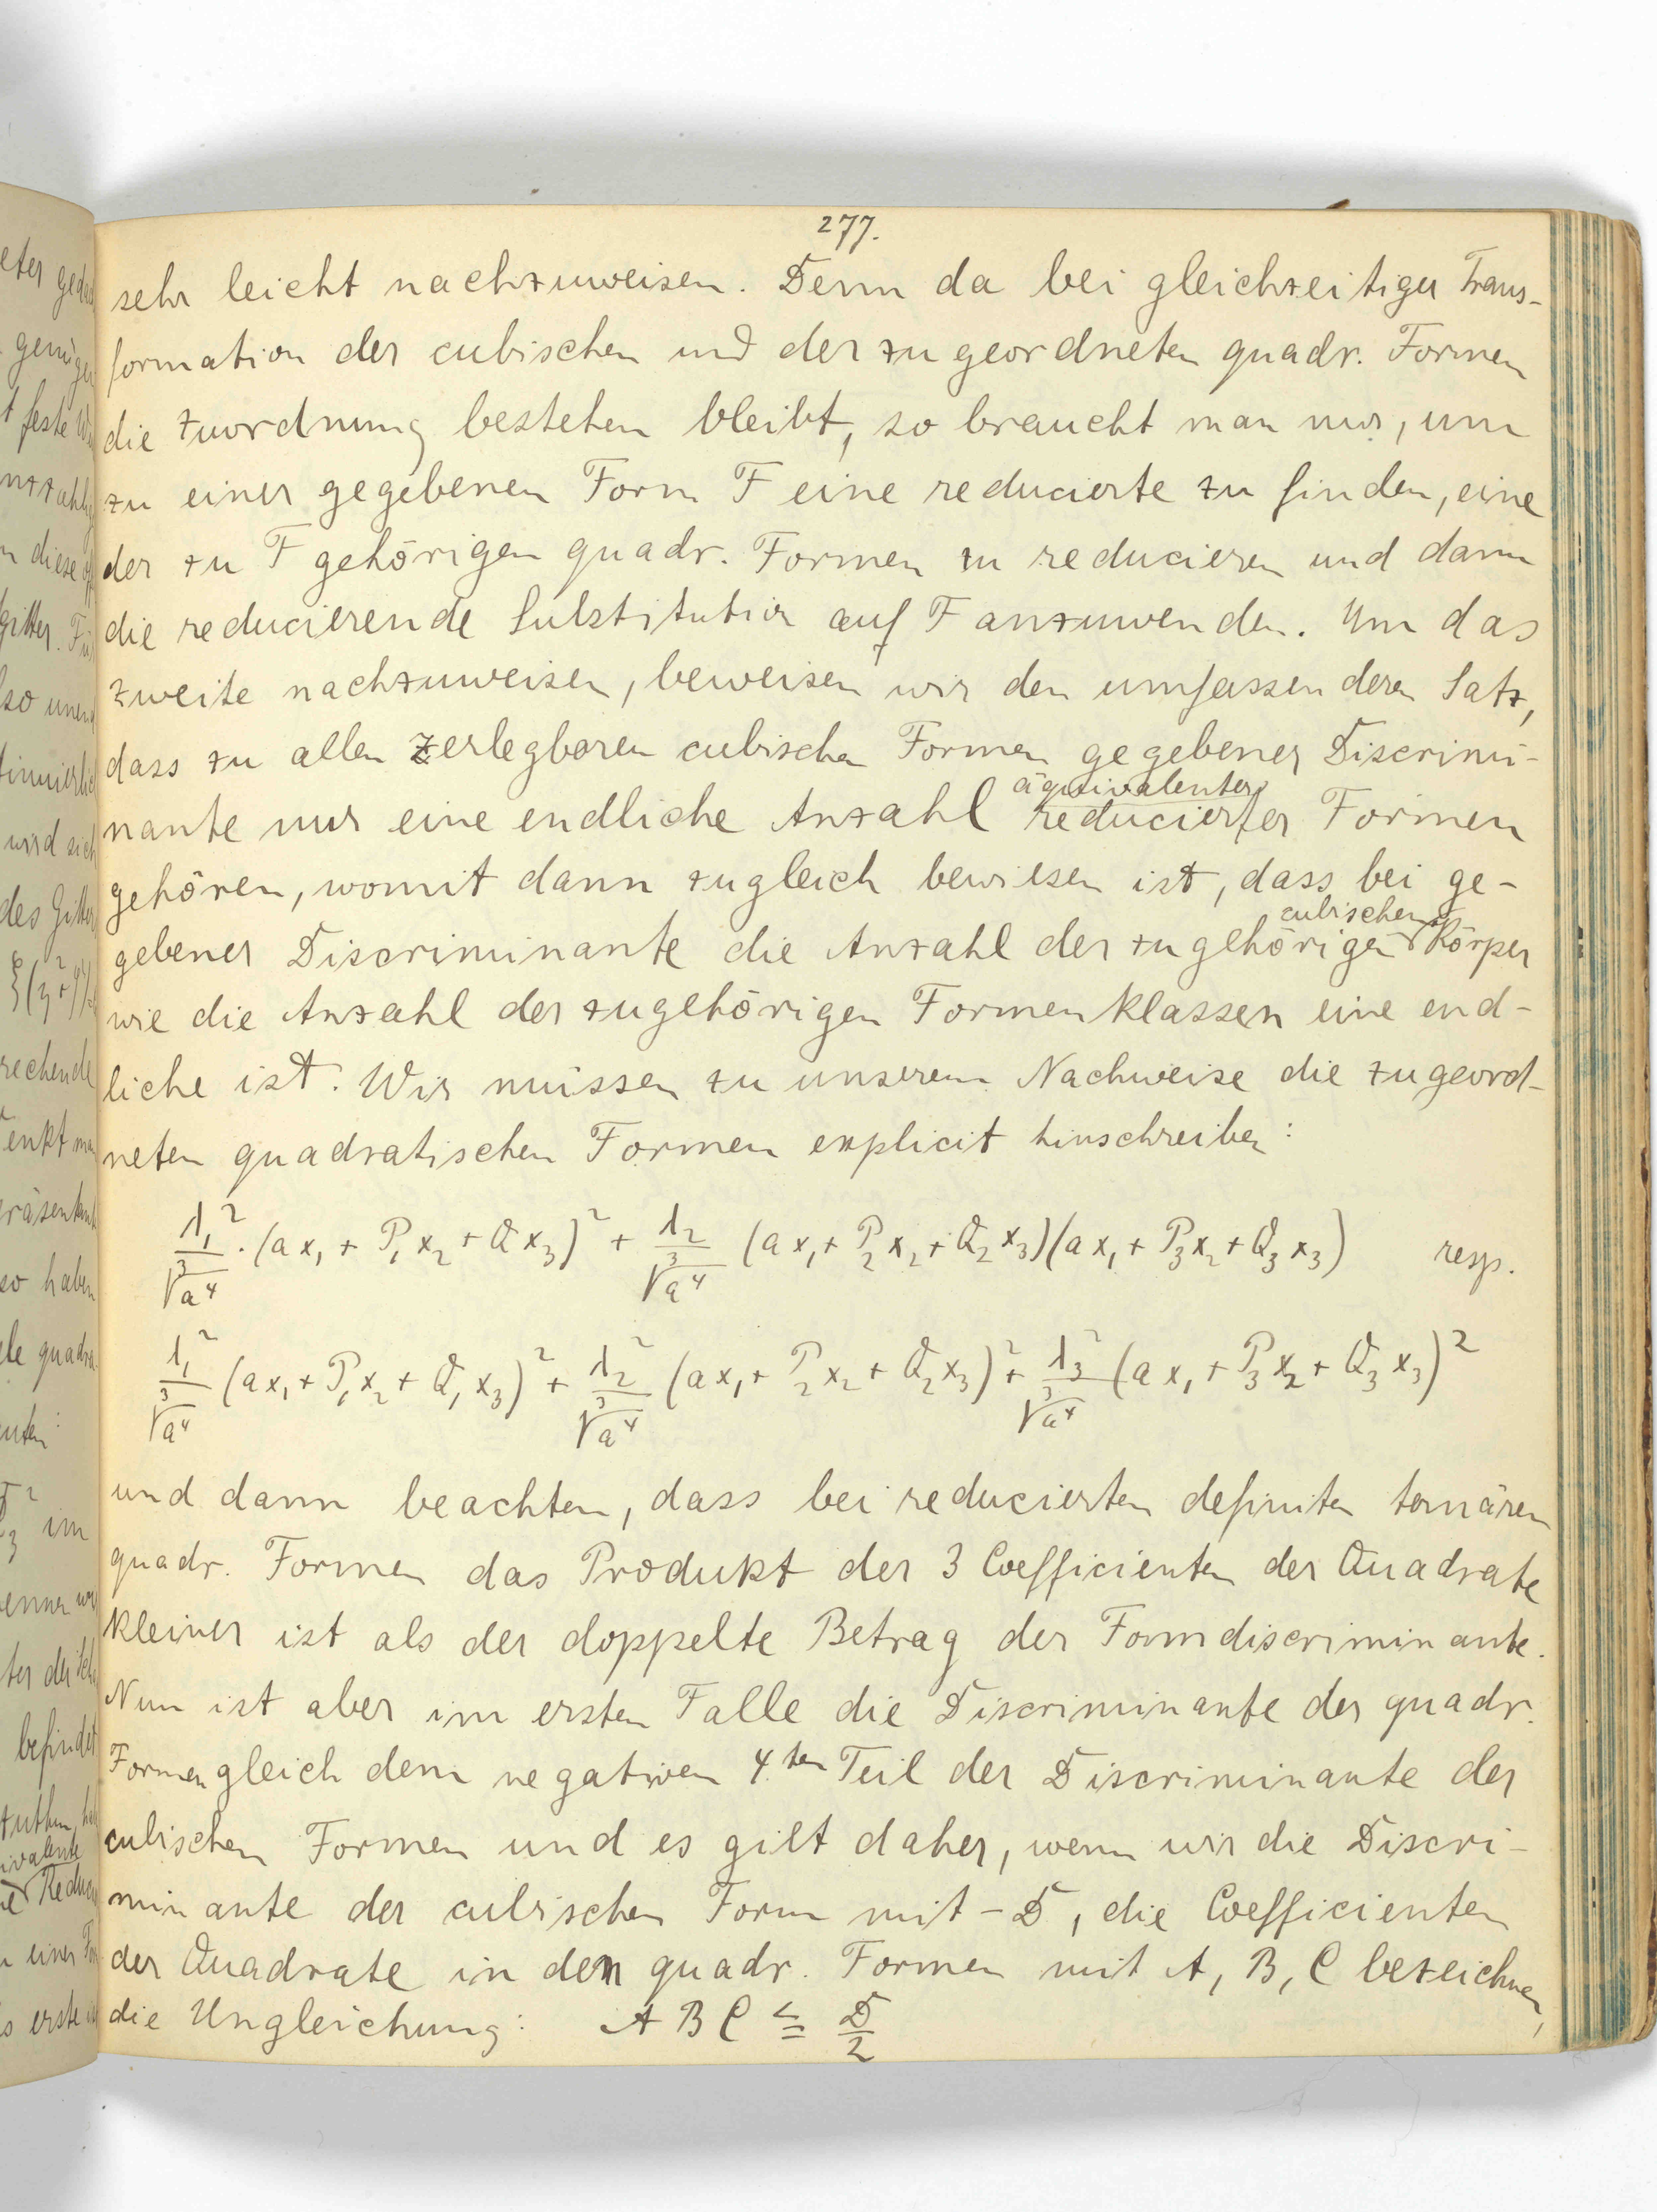 277.
sehr leicht nachzuweisen. Denn da bei gleichzeitiger Trans-
formation der cubischen und der zugeordneten quadr. Formen
die Zuordnung bestehen bleibt, so braucht man nur, um
zu einer gegebenen Form F eine reducierte zu finden, eine
der zu F gehörigen quadr. Formen zu reducieren und dann
die reducierende Substitution auf F anzuwenden. Um das
zweite nachzuweisen, beweisen wir den umfassenderen Satz,
dass zu allen zerlegbaren cubischen Formen gegebener Discrimi-
äquivalenter
nante nur eine endliche Anzahl reducierter Formen
gehören, womit dann zugleich bewiesen ist, dass bei ge-
cubischen
gebener Discriminante die Anzahl der zugehörigen Körper
wie die Anzahl der zugehörigen Formenklassen eine end-
liche ist. Wir müssen zu unserem Nachweise die zugeord-
neten quadratischen Formen explicit hinschreiben:
λ₁²/∛a⁴ · (ax₁ + P₁x₂ + Qx₃)² + λ₂/∛a⁴ (ax₁ + P₂x₂ + Q₂x₃)(ax₁ + P₃x₂ + Q₃x₃) resp.
λ₁²/∛a⁴ (ax₁ + P₁x₂ + Q₁x₃)² + λ₂²/∛a⁴ (ax₁ + P₂x₂ + Q₂x₃)² + λ₃²/∛a⁴ (ax₁ + P₃x₂ + Q₃x₃)²
und dann beachten, dass bei reducierten definiten ternären
quadr. Formen das Produkt der 3 Coefficienten der Quadrate
kleiner ist als der doppelte Betrag der Formdiscriminante.
Nun ist aber im ersten Falle die Discriminante der quadr.
Formen gleich dem negativen 4.ten Teil der Discriminante der
cubischen Formen und es gilt daher, wenn wir die Discri-
minante der cubischen Form mit -D, die Coefficienten
der Quadrate in den quadr. Formen mit A, B, C bezeichnen,
die Ungleichung: A B C ≦ D/2